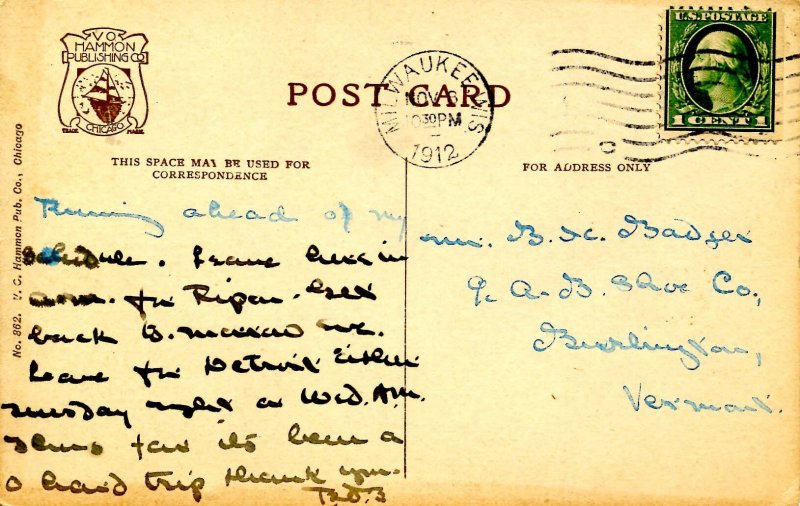 V O
HAMMON
PUBLISHING CO
TRADE MARK
CHICAGO
POST CARD
MILWAUKEE, WIS
NOV 6
30 PM
1912
U.S. POSTAGE
1 CENT 1
THIS SPACE MAY BE USED FOR
CORRESPONDENCE
FOR ADDRESS ONLY
No. 862. V. O. Hammon Pub. Co., Chicago
Running ahead of my
schedule. Leave here in
a.m. for Ripon. Get
back
Leave for Detroit either
night or Wed. A.M.
far its been a
hard trip thank you.
Mr. B. H. Badger
B. Shoe Co.,
Burlington,
Vermont.